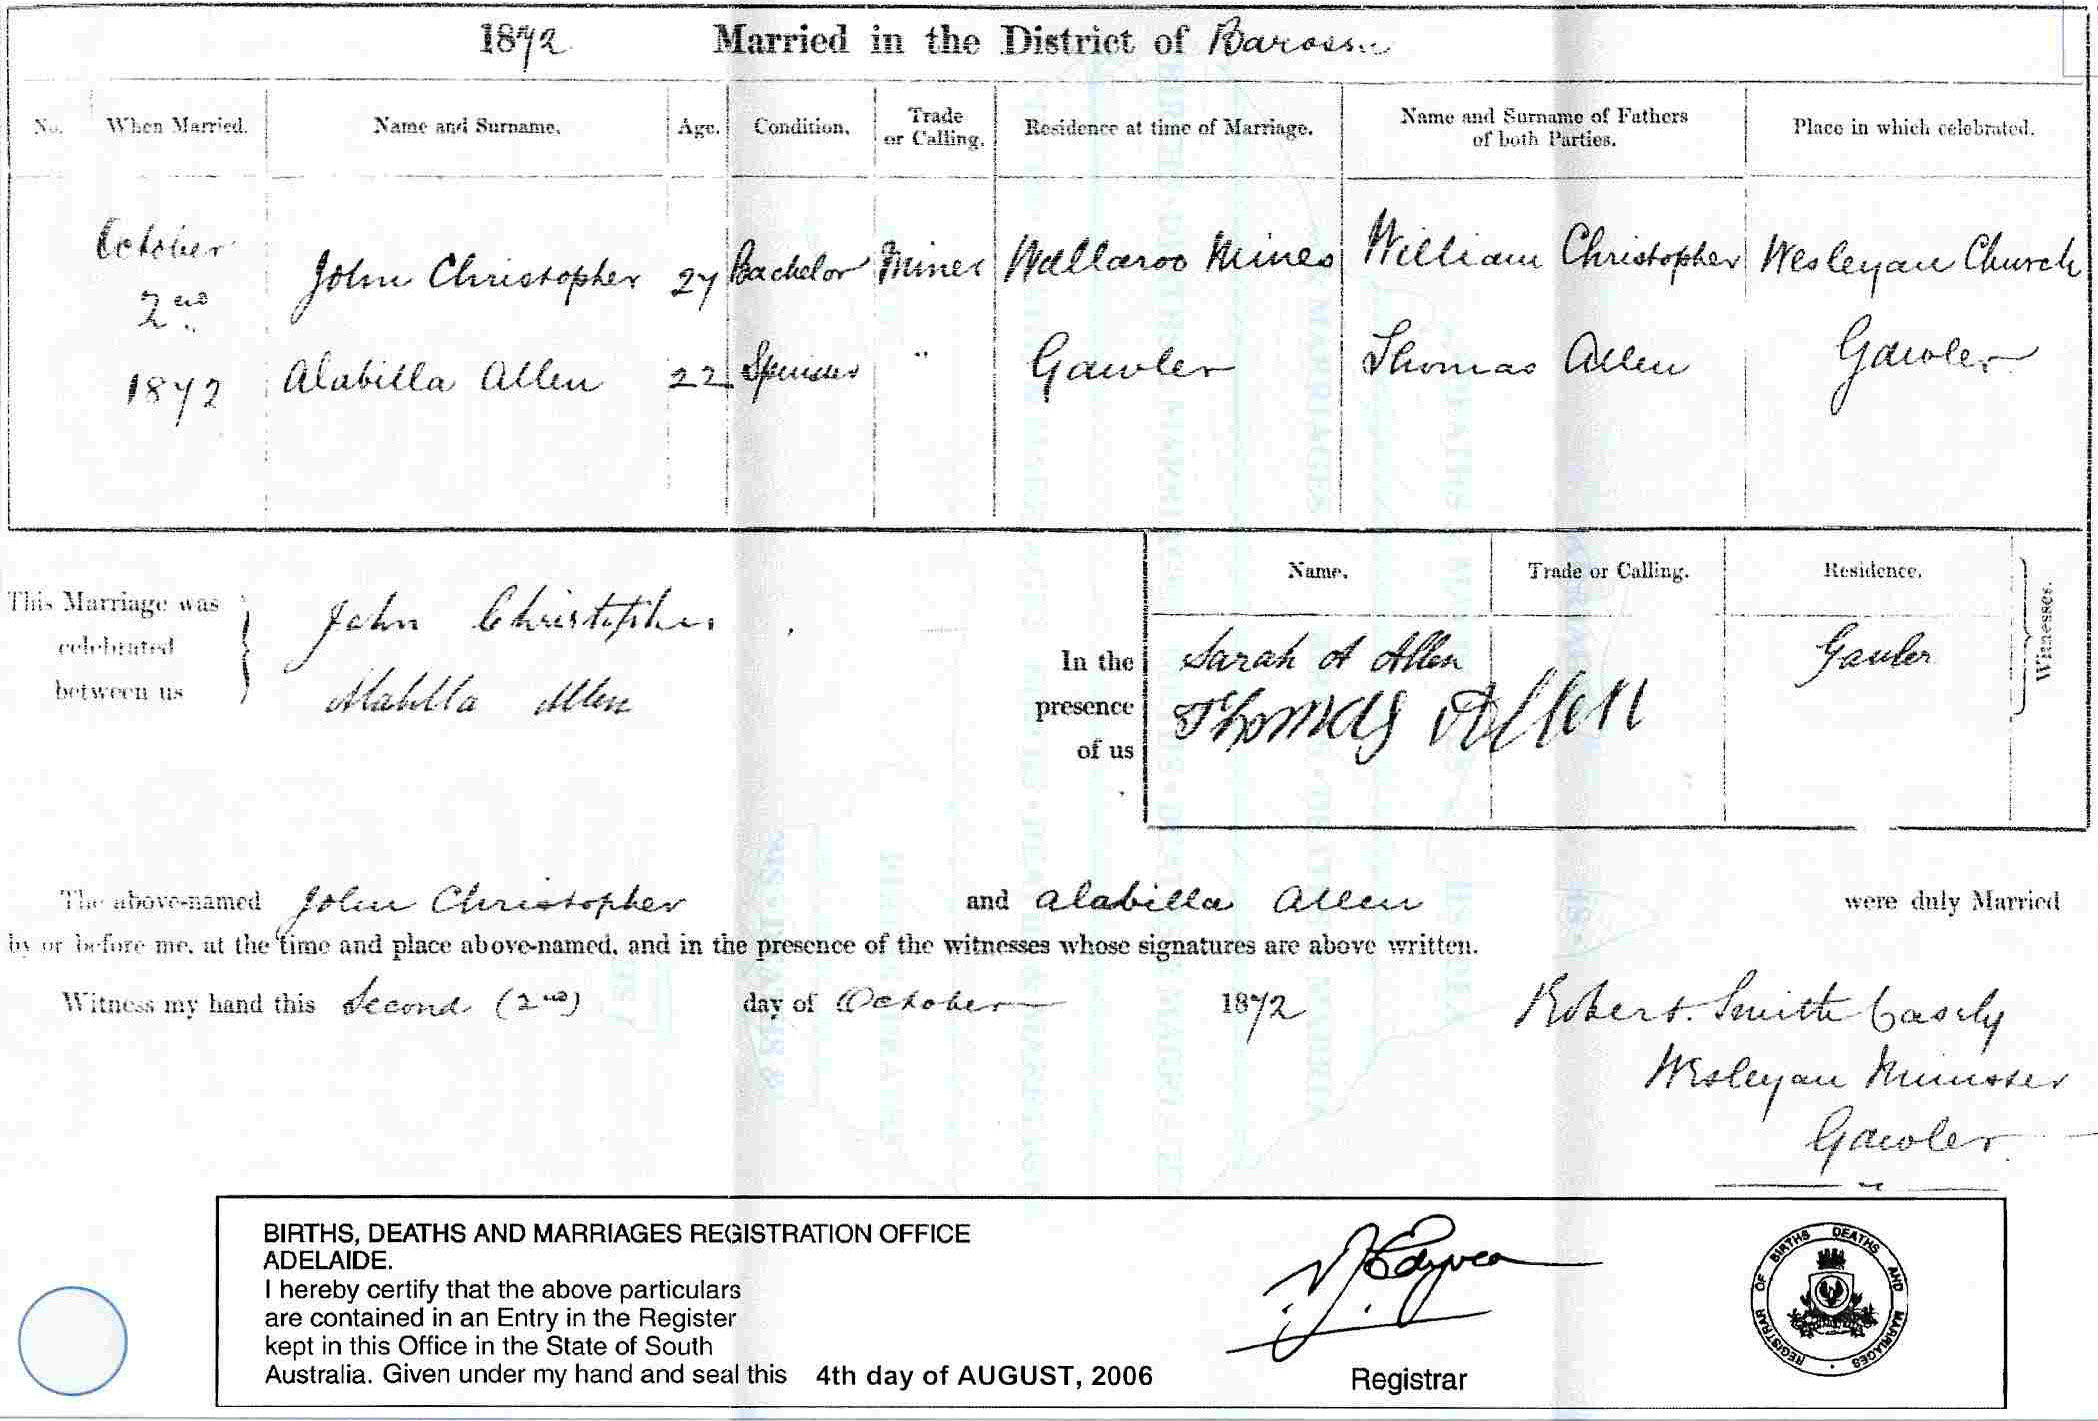 1872 Married in the District of Barossa
No. When Married. Name and Surname. Age. Condition. Trade or Calling. Residence at time of Marriage. Name and Surname of Fathers of both Parties. Place in which celebrated.
October 2nd 1872
John Christopher 27 Bachelor Miner Wallaroo Mines William Christopher Wesleyan Church
Alabilla Allen 22 Spinster " Gawler Thomas Allen Gawler
This Marriage was
celebrated
between us
John Christopher
Alabilla Allen
In the
presence
of us
Name. Trade or Calling. Residence.
Sarah A Allen Gawler
Thomas Allen
Witnesses.
The above-named John Christopher and Alabilla Allen were duly Married
by or before me, at the time and place above-named, and in the presence of the witnesses whose signatures are above written.
Witness my hand this Second (2nd) day of October 1872
Robert Smith Casely
Wesleyan Minister
Gawler
BIRTHS, DEATHS AND MARRIAGES REGISTRATION OFFICE
ADELAIDE.
I hereby certify that the above particulars
are contained in an Entry in the Register
kept in this Office in the State of South
Australia. Given under my hand and seal this 4th day of AUGUST, 2006
Registrar
REGISTRAR OF BIRTHS DEATHS AND MARRIAGES